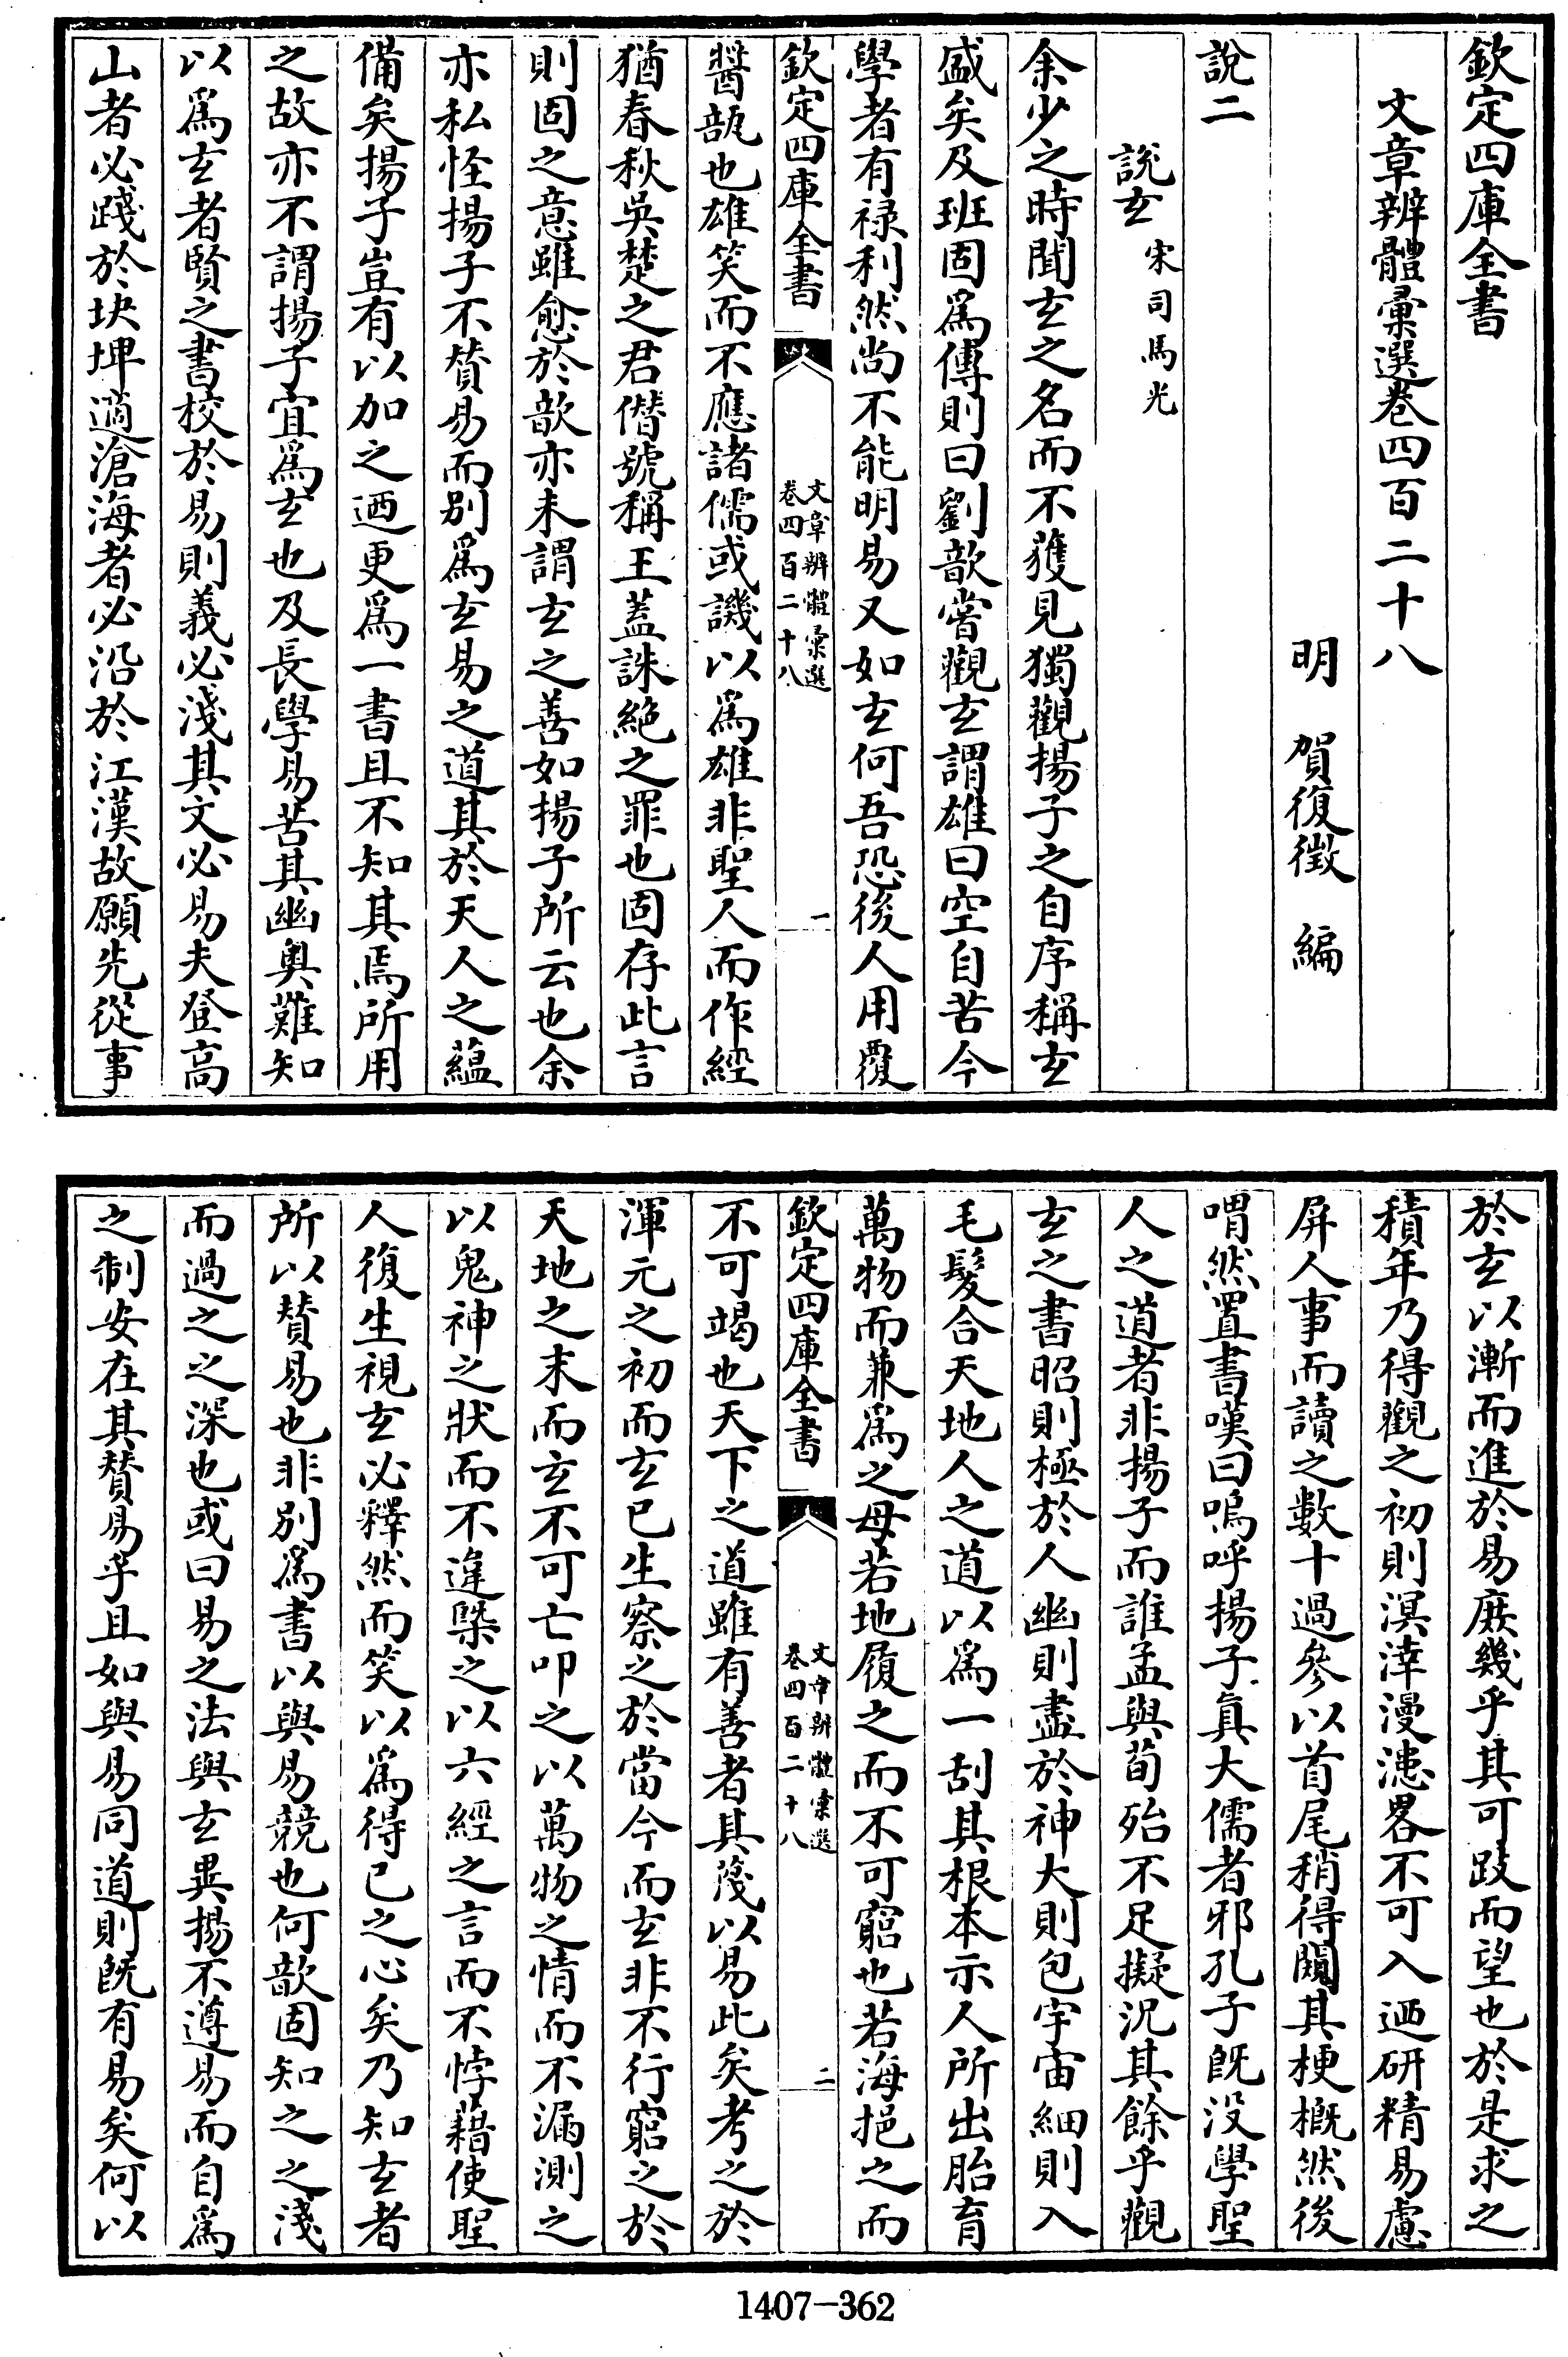 欽定四庫全書
文章辨體彙選卷四百二十八
明 賀復徵 編
說二
說玄 宋司馬光
余少之時聞玄之名而不獲見獨觀揚子之自序稱玄
盛矣及班固爲傳則曰劉歆嘗觀玄謂雄曰空自苦今
學者有祿利然尚不能明易又如玄何吾恐後人用覆
欽定四庫全書
文章辨體彙選
卷四百二十八
一
醬瓿也雄笑而不應諸儒或譏以爲雄非聖人而作經
猶春秋吳楚之君僭號稱王蓋誅絶之罪也固存此言
則固之意雖愈於歆亦未謂玄之善如揚子所云也余
亦私怪揚子不贊易而别爲玄易之道其於天人之蘊
備矣揚子豈有以加之廼更爲一書且不知其焉所用
之故亦不謂揚子宜爲玄也及長學易苦其幽奥難知
以爲玄者賢之書校於易則義必淺其文必易夫登高
山者必踐於坱埤適滄海者必沿於江漢故願先從事
於玄以漸而進於易庶幾乎其可跂而望也於是求之
積年乃得觀之初則溟涬漫漶畧不可入廼研精易慮
屏人事而讀之數十過參以首尾稍得闚其梗概然後
喟然置書嘆曰嗚呼揚子眞大儒者邪孔子既没學聖
人之道者非揚子而誰孟與荀殆不足擬況其餘乎觀
玄之書昭則極於人幽則盡於神大則包宇宙細則入
毛髮合天地人之道以爲一刮其根本示人所出胎育
萬物而兼爲之母若地履之而不可窮也若海挹之而
欽定四庫全書
文章辨體彙選
卷四百二十八
二
不可竭也天下之道雖有善者其蔑以易此矣考之於
渾元之初而玄已生察之於當今而玄非不行窮之於
天地之末而玄不可亡叩之以萬物之情而不漏測之
以鬼神之狀而不違槩之以六經之言而不悖藉使聖
人復生視玄必釋然而笑以爲得已之心矣乃知玄者
所以贊易也非别爲書以與易競也何歆固知之之淺
而過之之深也或曰易之法與玄異揚不遵易而自爲
之制安在其贊易乎且如與易同道則既有易矣何以
1407-362